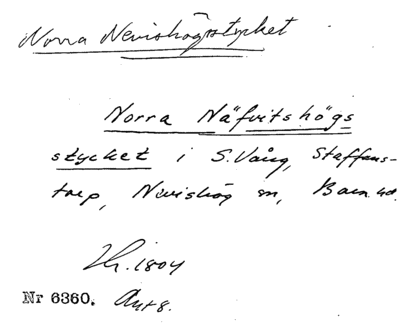 Norra Nevishögsstycket
Norra Näfvitshögs
stycket i S. Vång, Staffans-
torp, Nevishög sn, Bara hd.
1804
Nr 6360. Akt 8.